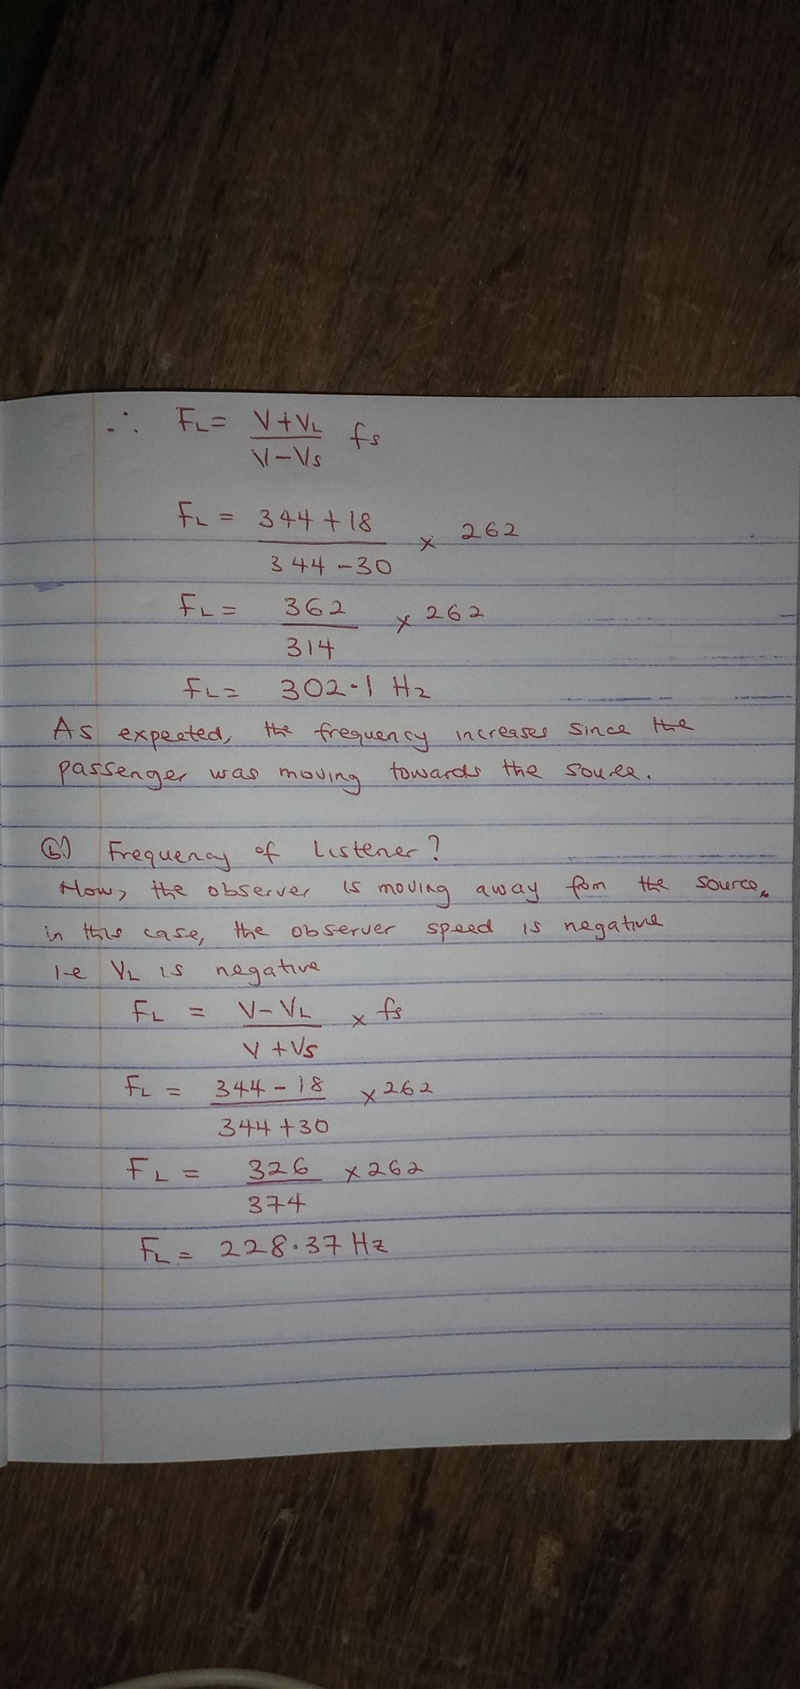 ∴ FL = V+VL / V-Vs fs
FL = 344+18 / 344-30 × 262
FL = 362 / 314 × 262
FL = 302.1 Hz
As expected, the frequency increases since the
passenger was moving towards the source.
(b) Frequency of Listener?
Now, the observer is moving away from the source,
in this case, the observer speed is negative
i.e VL is negative
FL = V-VL / V+Vs × fs
FL = 344-18 / 344+30 × 262
FL = 326 / 374 × 262
FL = 228.37 Hz